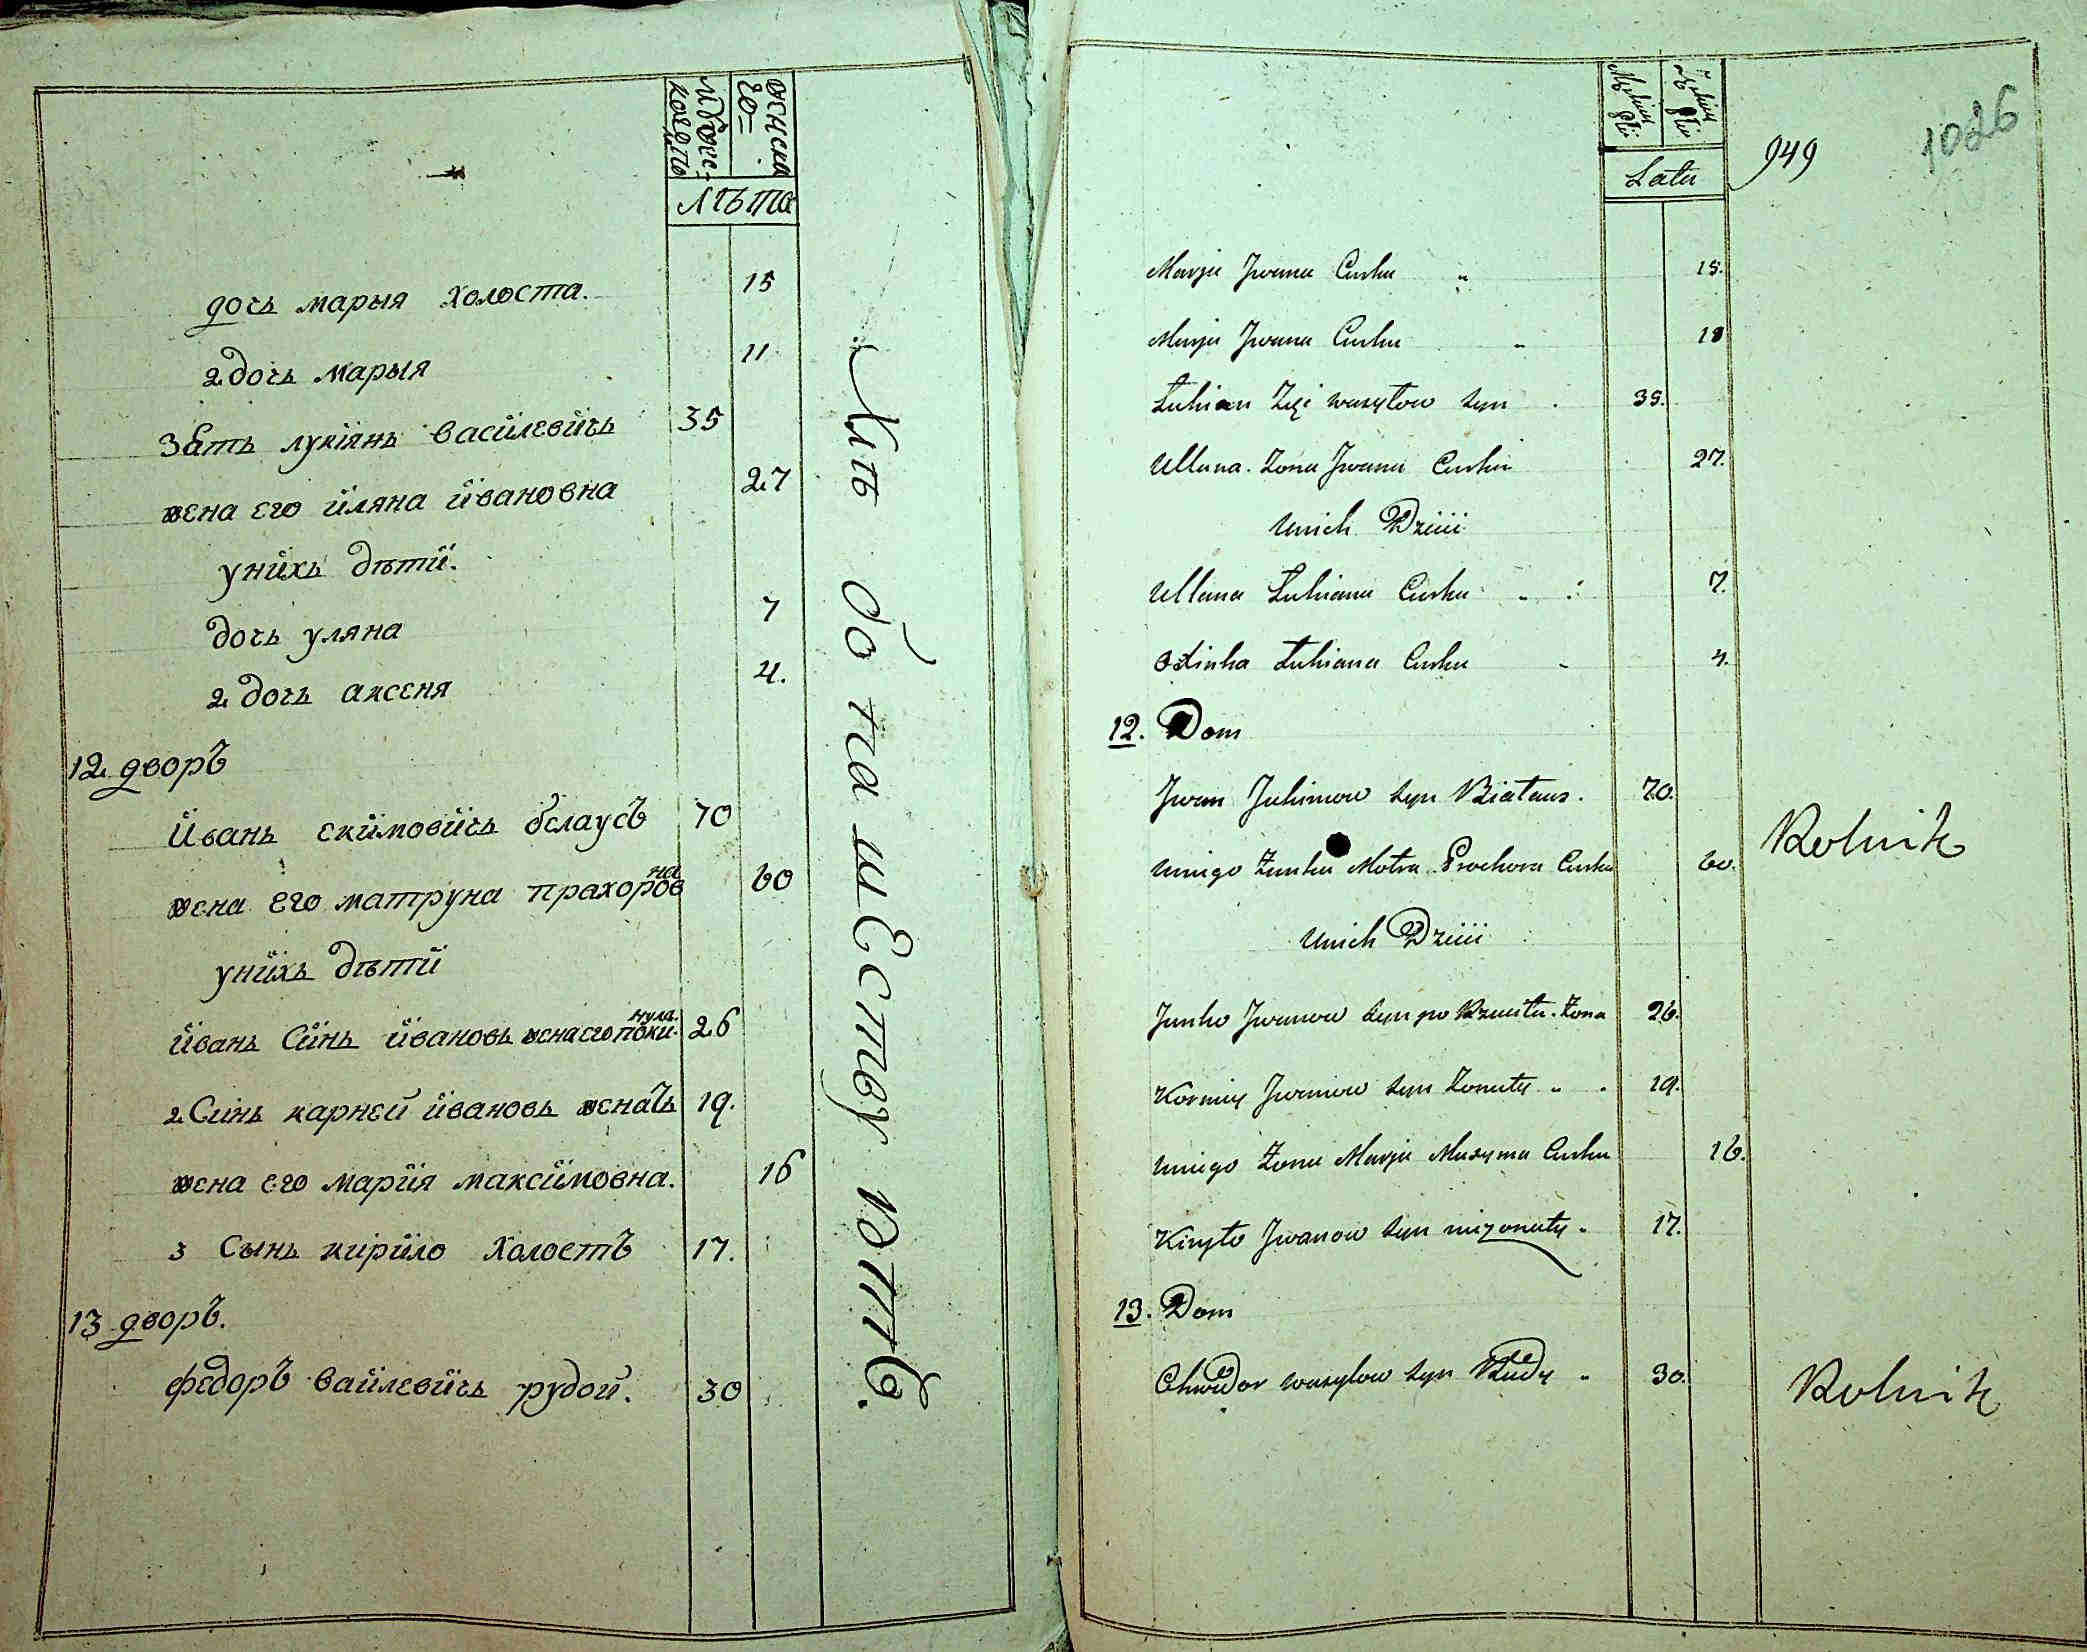 женска
го=
мѵжес-
каго по
лѣта
дочь марыя холоста.
15
2 дочь марыя
11
Зять лукіянь васїлевїчь
35
жена его їляна ївановна
27
унїхь дѣтї.
дочь уляна
7
2 дочь аксеня
4.
12 дворъ
Ївань екїмовїчь белаусъ
70
жена его матруна прахоровна
60
унїхь дѣтї
ївань Сїнь ївановь жена его покинула.
26
2 Сїнь карней ївановь женатъ
19.
жена его марїя максїмовна.
16
3 Сынь кирїло холостъ
17.
13 дворъ.
федоръ ваїлевїчь рудой.
30
Хлѣбо пашеству етъ.
Latu
949
1026
Marju Jwana Curku "
15.
Marju Jwana Curku "
18
Łukian Zięć wasyłow syn
35.
Ullana. Żona Jwana Curku
27.
Unich Dzieii
Ullana Łukiana Curku "
7.
Oxinka Łukiana Curku
4.
12. Dom
Jwan Jukimow syn Białaus.
70.
Uniego Żonka Motra Prochora Curku
60.
Rolnik
Unich Dzieii
Janko Jwanow syn po Rzuciła. Żona
26.
Korniey Jwanow syn Żonaty " "
19.
Uniego Żona Marju Maxyma Curku
16.
Kiryło Jwanow syn nieżonaty "
17.
13. Dom
Chwedor wasylow syn Rudy "
30.
Rolnik